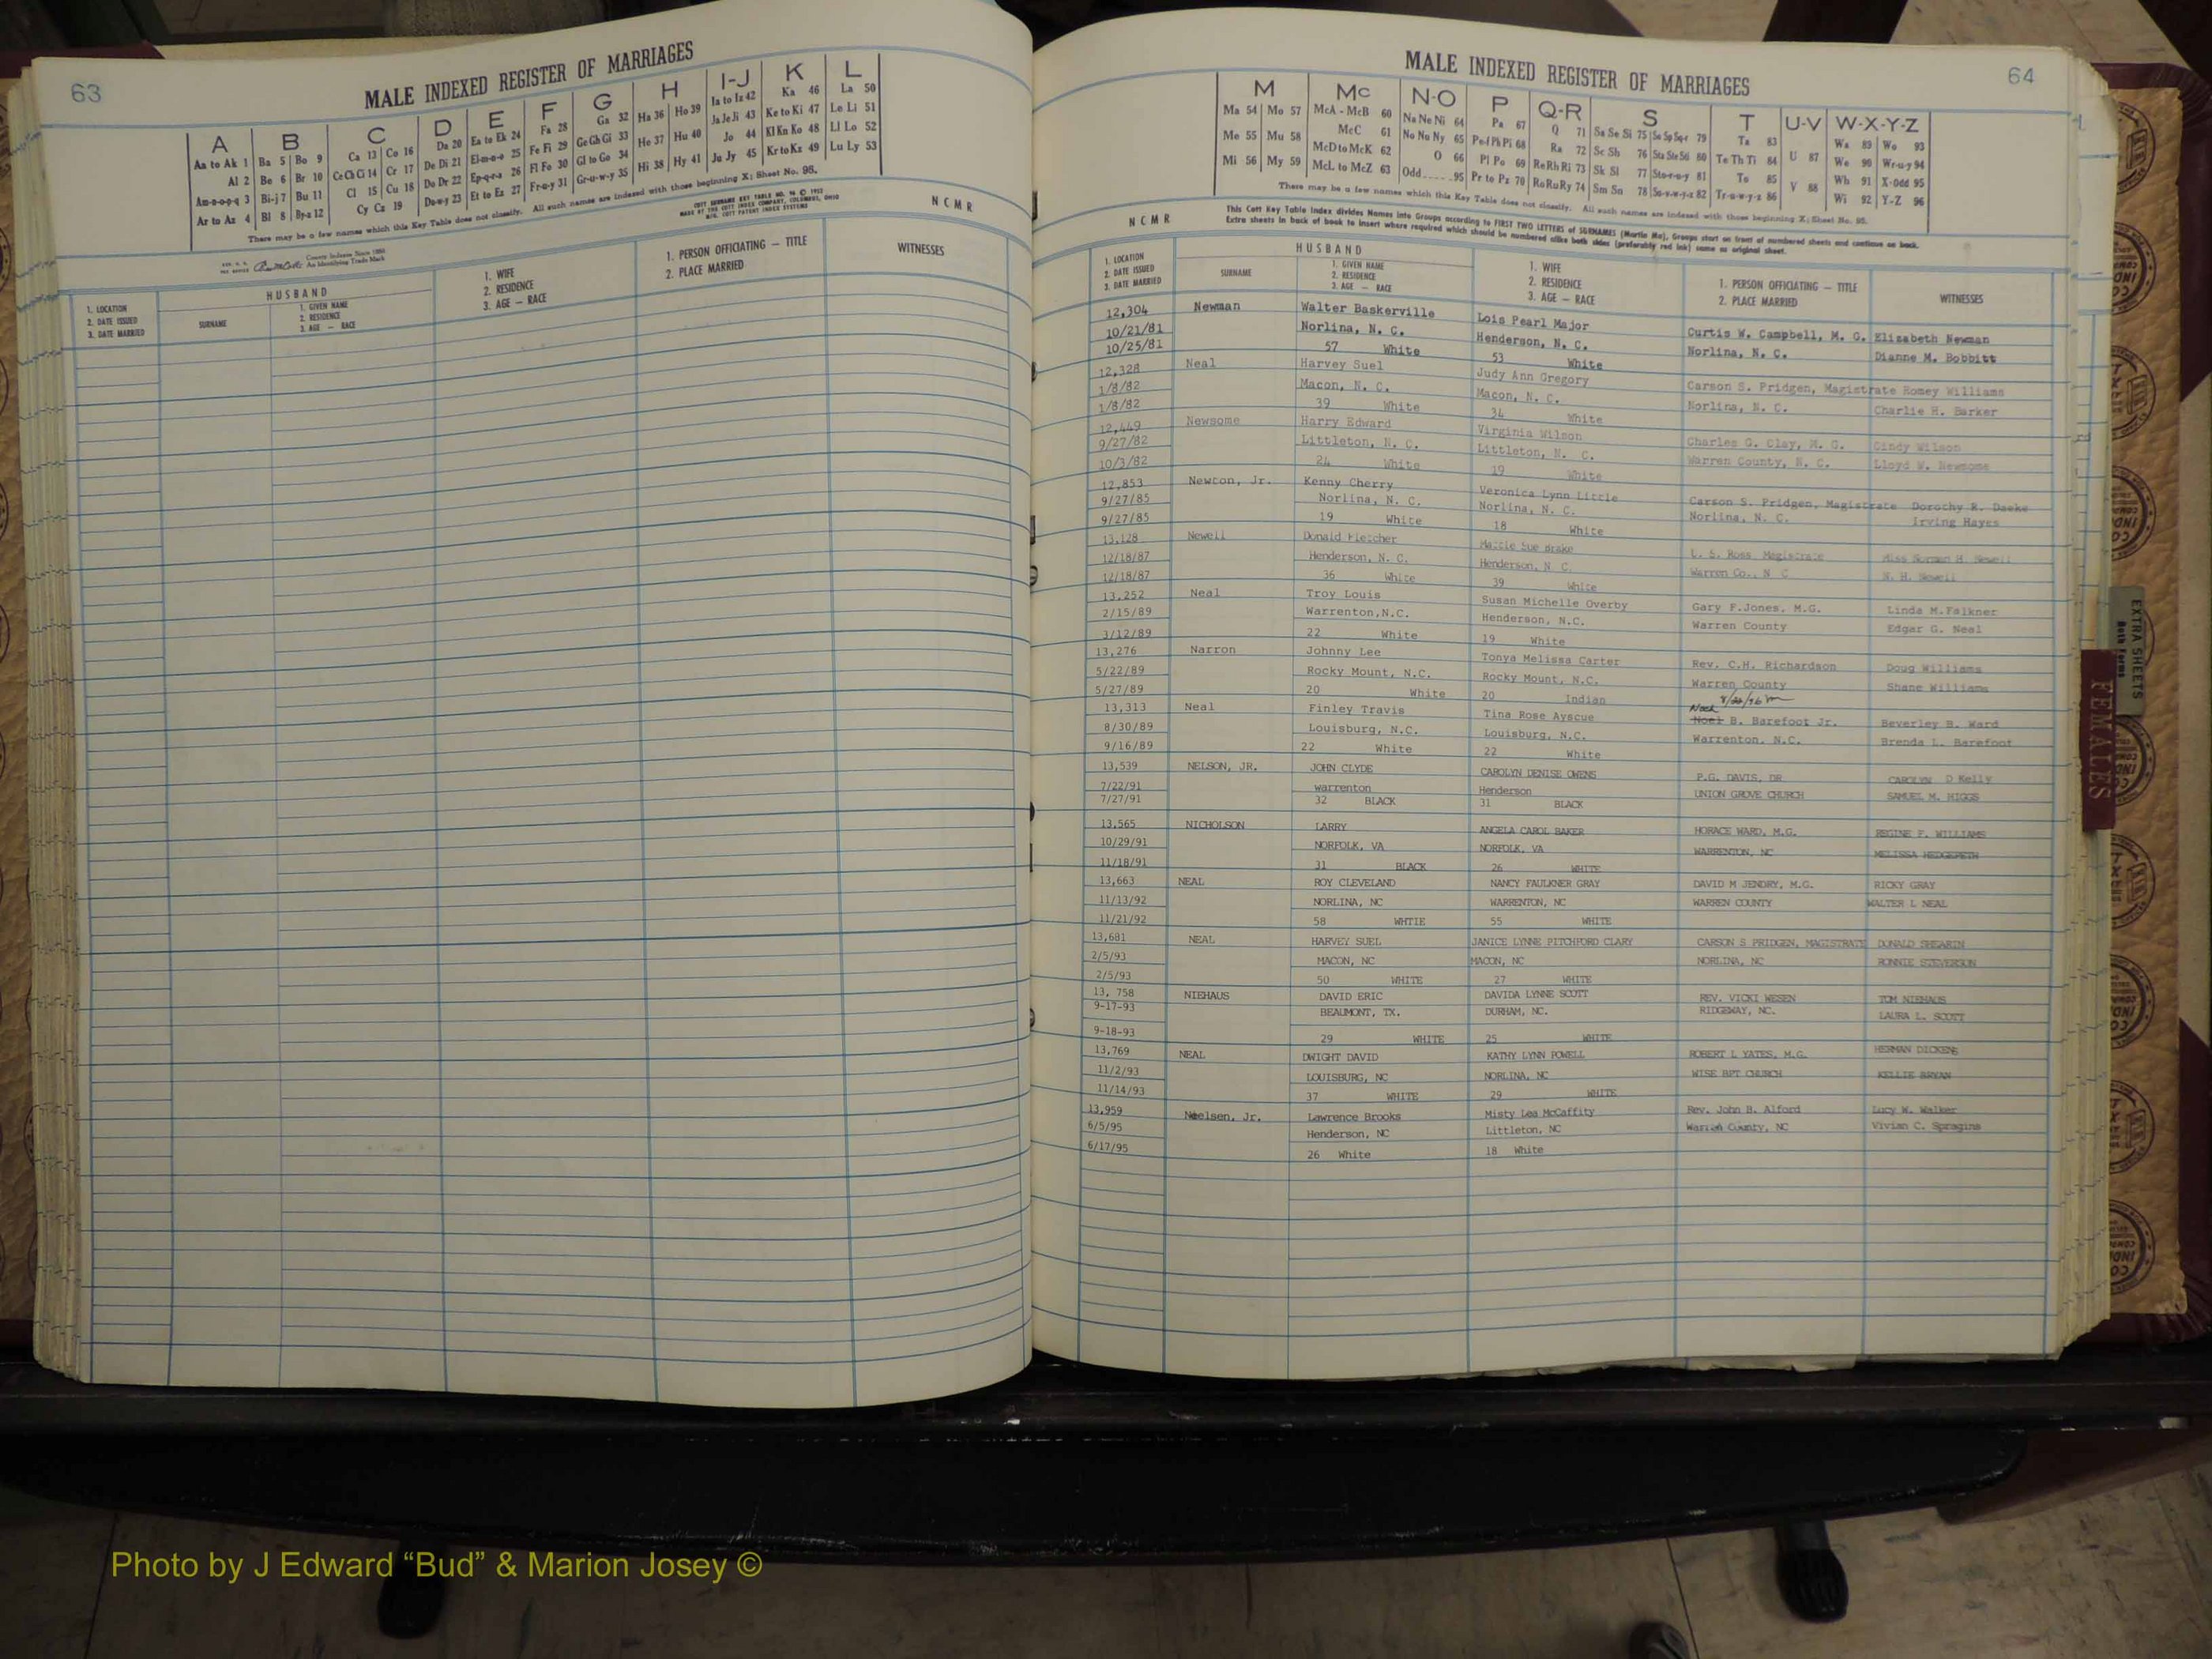 63
MALE INDEXED REGISTER OF MARRIAGES
A B C D E F G H I-J K L
Aa to Ak 1 Ba 5 Bo 9 Ca 13 Co 16 Da 20 Ea to Ek 24 Fa 28 Ga 32 Ha 36 Ho 39 Ia to Iz 42 Ka 46 La 50
Al 2 Be 6 Br 10 Ce Ch Ci 14 Cr 17 De Di 21 El-m-n-o 25 Fe Fi 29 Ge Gh Gi 33 He 37 Hu 40 Ja Je Ji 43 Ke to Ki 47 Le Li 51
Am-n-o-p-q 3 Bi-j 7 Bu 11 Cl 15 Cu 18 Do Dr 22 Ep-q-r-s 26 Fl Fo 30 Gl to Go 34 Hi 38 Hy 41 Jo 44 Kl Kn Ko 48 Ll Lo 52
Ar to Az 4 Bl 8 By-z 12 Cy Cz 19 Du-w-y 23 Et to Ez 27 Fr-u-y 31 Gr-u-w-y 35 Ju Jy 45 Kr to Kz 49 Lu Ly 53
There may be a few names which this Key Table does not classify. All such names are indexed with those beginning X; Sheet No. 95.
COTT SURNAME KEY TABLE NO. 96 © 1952
MADE BY THE COTT INDEX COMPANY, COLUMBUS, OHIO
MFG. COTT PATENT INDEX SYSTEMS
N C M R
County Indexes Since 1888
An Identifying Trade Mark
1. LOCATION
2. DATE ISSUED
3. DATE MARRIED
HUSBAND
SURNAME
1. GIVEN NAME
2. RESIDENCE
3. AGE — RACE
1. WIFE
2. RESIDENCE
3. AGE — RACE
1. PERSON OFFICIATING — TITLE
2. PLACE MARRIED
WITNESSES
64
MALE INDEXED REGISTER OF MARRIAGES
M Mc N-O P Q-R S T U-V W-X-Y-Z
Ma 54 Mo 57 McA - McB 60 Na Ne Ni 64 Pa 67 Q 71 Sa Se Si 75 So Sp Sq-r 79 Ta 83 U 87 Wa 89 Wo 93
Me 55 Mu 58 McC 61 No Nu Ny 65 Pe-f Ph Pi 68 Ra 72 Sc Sh 76 Sta Ste Sti 80 Te Th Ti 84 V 88 We 90 Wr-u-y 94
Mi 56 My 59 McD to McK 62 O 66 Pl Po 69 Re Rh Ri 73 Sk Sl 77 Sto-r-u-y 81 To 85 Wh 91 X-Odd 95
McL to McZ 63 Odd.....95 Pr to Pz 70 Ro Ru Ry 74 Sm Sn 78 Su-v-w-y-z 82 Tr-u-w-y-z 86 Wi 92 Y-Z 96
There may be a few names which this Key Table does not classify. All such names are indexed with those beginning X; Sheet No. 95.
N C M R
This Cott Key Table Index divides Names into Groups according to FIRST TWO LETTERS of SURNAMES (Martin Ma), Groups start on front of numbered sheets and continue on back.
Extra sheets in back of book to insert where required which should be numbered alike both sides (preferably red ink) same as original sheet.
1. LOCATION
2. DATE ISSUED
3. DATE MARRIED
HUSBAND
SURNAME
1. GIVEN NAME
2. RESIDENCE
3. AGE — RACE
1. WIFE
2. RESIDENCE
3. AGE — RACE
1. PERSON OFFICIATING — TITLE
2. PLACE MARRIED
WITNESSES
12,304 Newman Walter Baskerville Lois Pearl Major Curtis W. Campbell, M. G. Elizabeth Newman
10/21/81 Norlina, N. C. Henderson, N. C. Norlina, N. C. Dianne M. Bobbitt
10/25/81 57 White 53 White
12,328 Neal Harvey Suel Judy Ann Gregory Carson S. Pridgen, Magistrate Romey Williams
1/8/82 Macon, N. C. Macon, N. C. Norlina, N. C. Charlie H. Barker
1/8/82 39 White 34 White
12,449 Newsome Harry Edward Virginia Wilson Charles G. Clay, M. G. Cindy Wilson
9/27/82 Littleton, N. C. Littleton, N. C. Warren County, N. C. Lloyd W. Newsome
10/3/82 24 White 19 White
12,853 Newton, Jr. Kenny Cherry Veronica Lynn Little Carson S. Pridgen, Magistrate Dorothy R. Daeke
9/27/85 Norlina, N. C. Norlina, N. C. Norlina, N. C. Irving Hayes
9/27/85 19 White 18 White
13,128 Newell Donald Fletcher Mattie Sue Brake L. S. Ross Magistrate Miss Norman H. Newell
12/18/87 Henderson, N. C. Henderson, N. C. Warren Co., N C N. H. Newell
12/18/87 36 White 39 White
13,252 Neal Troy Louis Susan Michelle Overby Gary F.Jones, M.G. Linda M.Falkner
2/15/89 Warrenton,N.C. Henderson, N.C. Warren County Edgar G. Neal
3/12/89 22 White 19 White
13,276 Narron Johnny Lee Tonya Melissa Carter Rev. C.H. Richardson Doug Williams
5/22/89 Rocky Mount, N.C. Rocky Mount, N.C. Warren County Shane Williams
5/27/89 20 White 20 Indian
13,313 Neal Finley Travis Tina Rose Ayscue Noel B. Barefoot Jr. Beverley B. Ward
8/30/89 Louisburg, N.C. Louisburg, N.C. Warrenton, N.C. Brenda L. Barefoot
9/16/89 22 White 22 White
13,539 NELSON, JR. JOHN CLYDE CAROLYN DENISE OWENS P.G. DAVIS, DR CAROLYN D Kelly
7/22/91 warrenton Henderson UNION GROVE CHURCH SAMUEL M. HIGGS
7/27/91 32 BLACK 31 BLACK
13,565 NICHOLSON LARRY ANGELA CAROL BAKER HORACE WARD, M.G. REGINE F. WILLIAMS
10/29/91 NORFOLK, VA NORFOLK, VA WARRENTON, NC MELISSA HEDGEPETH
11/18/91 31 BLACK 26 WHITE
13,663 NEAL ROY CLEVELAND NANCY FAULKNER GRAY DAVID M JENDRY, M.G. RICKY GRAY
11/13/92 NORLINA, NC WARRENTON, NC WARREN COUNTY WALTER L NEAL
11/21/92 58 WHTIE 55 WHITE
13,681 NEAL HARVEY SUEL JANICE LYNNE PITCHFORD CLARY CARSON S PRIDGEN, MAGISTRATE DONALD SHEARIN
2/5/93 MACON, NC MACON, NC NORLINA, NC RONNIE STEVERSON
2/5/93 50 WHITE 27 WHITE
13, 758 NIEHAUS DAVID ERIC DAVIDA LYNNE SCOTT REV. VICKI WESEN TOM NIEHAUS
9-17-93 BEAUMONT, TX. DURHAM, NC. RIDGEWAY, NC. LAURA L. SCOTT
9-18-93 29 WHITE 25 WHITE
13,769 NEAL DWIGHT DAVID KATHY LYNN POWELL ROBERT L YATES, M.G. HERMAN DICKENS
11/2/93 LOUISBURG, NC NORLINA, NC WISE BPT CHURCH KELLIE BRYAN
11/14/93 37 WHITE 29 WHITE
13,959 Neelsen, Jr. Lawrence Brooks Misty Lea McCaffity Rev. John B. Alford Lucy W. Walker
6/5/95 Henderson, NC Littleton, NC Warren County, NC Vivian C. Spragins
6/17/95 26 White 18 White
EXTRA SHEETS
Both Forms
FEMALES
Photo by J Edward “Bud” & Marion Josey ©